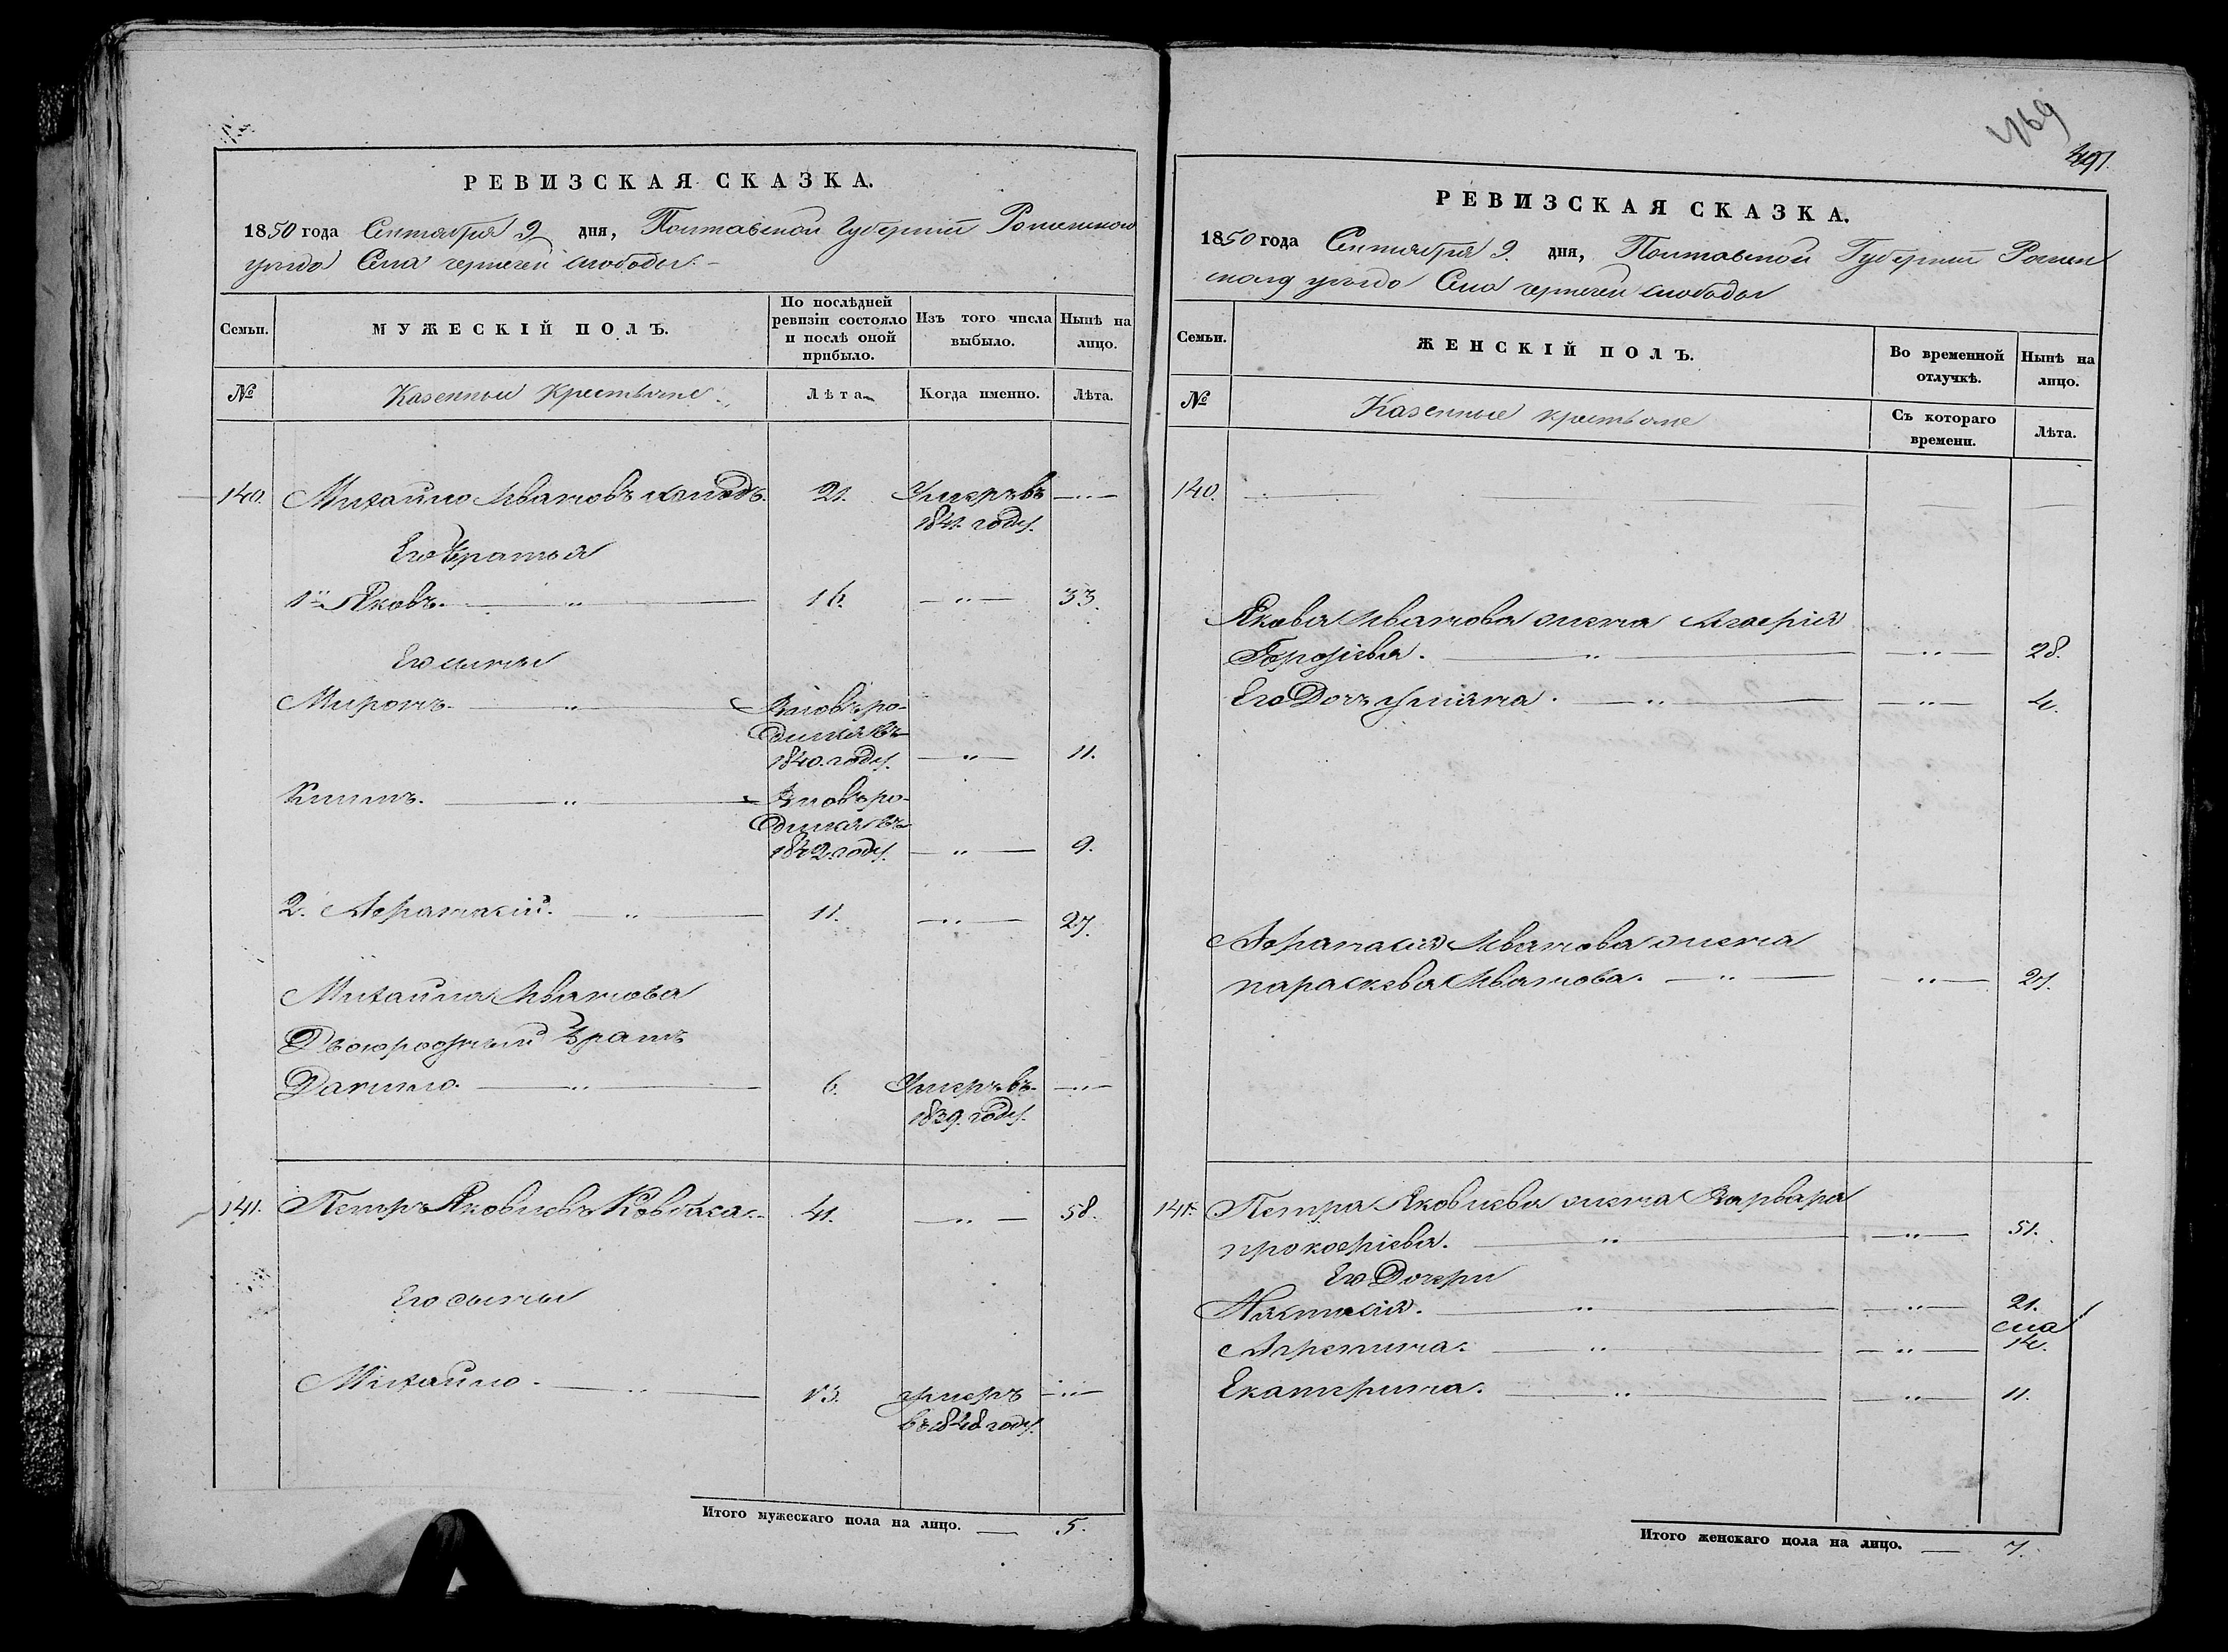 РЕВИЗСКАЯ СКАЗКА.
1850 года Сентября 9 дня, Полтавской Губерніи Роменского
уезда Села черчей слободы.
Семьи.
МУЖЕСКІЙ ПОЛЪ.
По послѣдней
ревизіи состояло
и послѣ оной
прибыло.
Изъ того числа
выбыло.
Нынѣ на
лицо.
№
Казенныи Крестьяне
Лѣта
Когда именно.
Лѣта.
140. Михайло Ивановъ 21. Умеръ въ
1841. году.
Его братья
1й Яковъ. 16. 33.
Его сыны
Миронъ. Вновь ро-
дился въ
1840. году. 11.
Климъ. Вновь ро-
дился въ
1842 году. 9.
2. Афанасій. 11. 27.
Михайла Иванова
Двоюродный братъ
Данило. 6. Умеръ въ
1839. году.
141. Петръ Яковлевъ Ковбаса. 41. 58.
Его сыны
Михайло. 13. умеръ
въ 1848 году.
Итого мужескаго пола на лицо. 5.
469
497.
РЕВИЗСКАЯ СКАЗКА.
1850 года Сентября 9. дня, Полтавской Губерніи Ромен
ского уезда Села черчей слободы
Семьи.
ЖЕНСКІЙ ПОЛЪ.
Во временной
отлучкѣ.
Нынѣ на
лицо.
№
Казенные крестьяне
Съ котораго
времени.
Лѣта.
140.
Якова Иванова жена Агафія
28.
Его Дочь Уліяна. 4.
Афанасія Иванова жена
параскева Иванова. 27.
141. Петра Яковлева жена Варвара
прокофіева. 51.
Его Дочери
Настасія. 21.
Агрепина. 14.
Екатерина. 11.
Итого женскаго пола на лицо. 7.